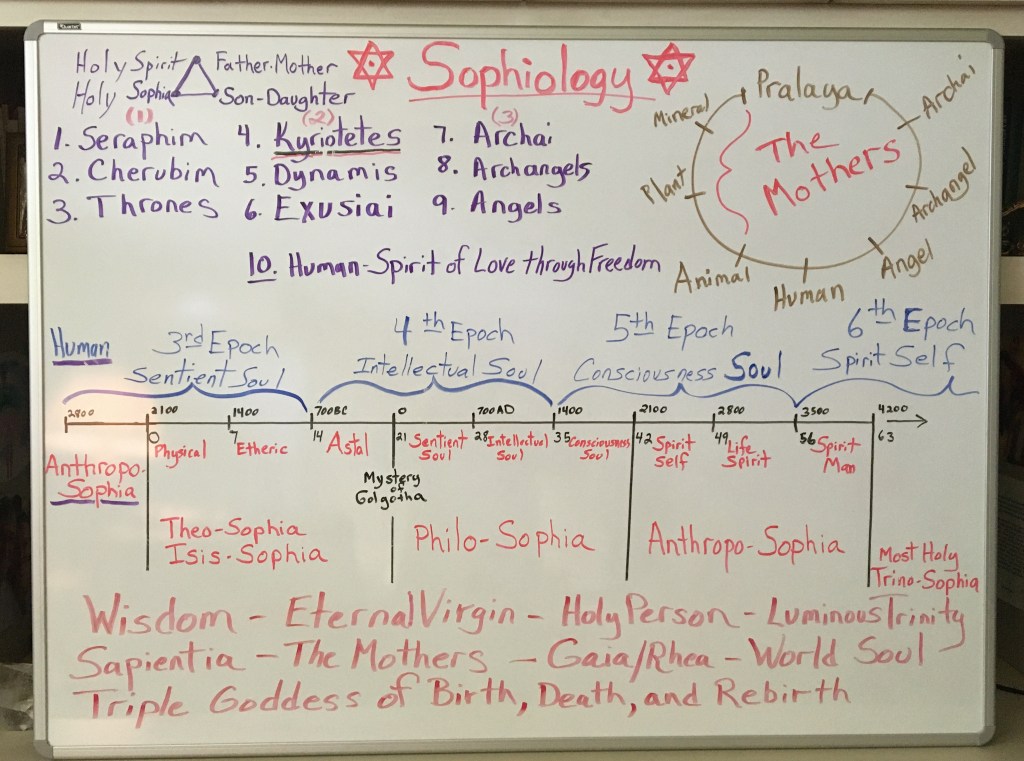 Sophiology
Holy Spirit
Father-Mother
Holy Sophia
Son-Daughter
(1)
1. Seraphim
2. Cherubim
3. Thrones
(2)
4. Kyriotetes
5. Dynamis
6. Exusiai
(3)
7. Archai
8. Archangels
9. Angels
10. Human-Spirit of Love through Freedom
Pralaya
Archai
Archangel
Angel
Human
Animal
Plant
Mineral
The
Mothers
Human
3rd Epoch
Sentient Soul
4th Epoch
Intellectual Soul
5th Epoch
Consciousness Soul
6th Epoch
Spirit Self
2800 2100 1400 700BC 0 700AD 1400 2100 2800 3500 4200
0 7 14 21 28 35 42 49 56 63
Anthropo-
Sophia
Physical
Etheric
Astal
Sentient
Soul
Intellectual
Soul
Consciousness
Soul
Spirit
Self
Life
Spirit
Spirit
Man
Mystery
of
Golgotha
Theo-Sophia
Isis-Sophia
Philo-Sophia
Anthropo-Sophia
Most Holy
Trino-Sophia
Wisdom - Eternal Virgin - Holy Person - Luminous Trinity
Sapientia - The Mothers - Gaia/Rhea - World Soul
Triple Goddess of Birth, Death, and Rebirth